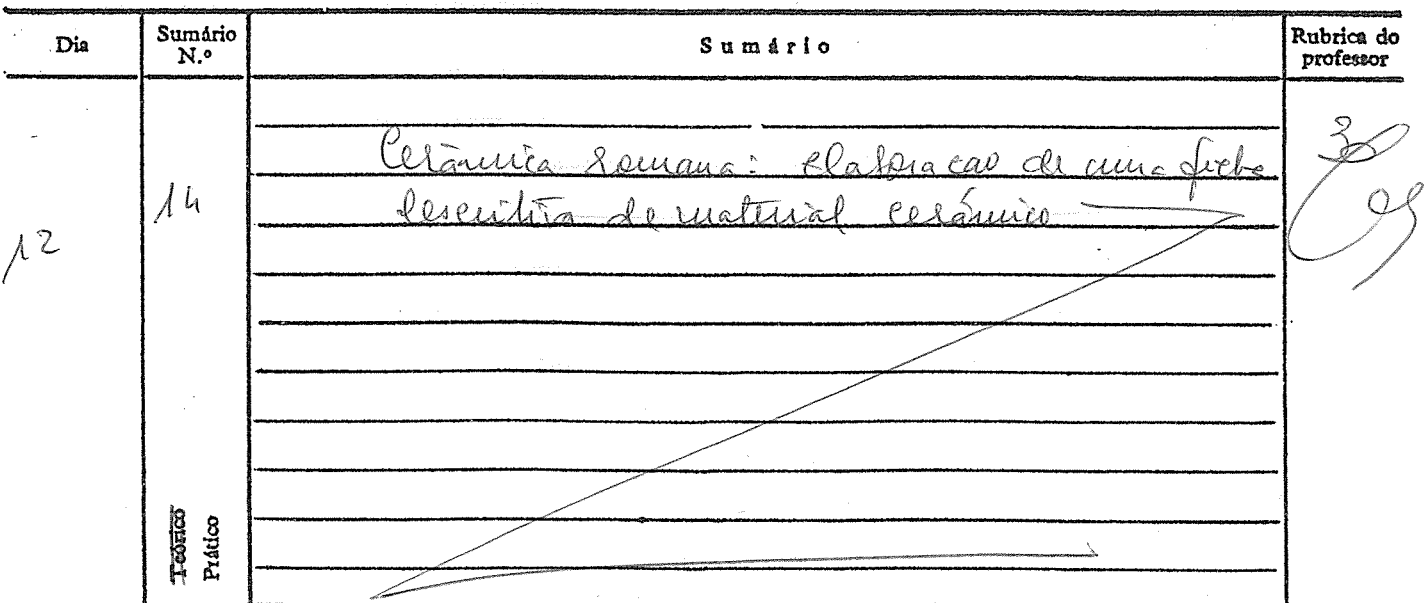 Dia Sumário N.º Sumário Rubrica do professor
Cerâmica Romana: elaboração de uma ficha
14 descritiva de material cerâmico
12
Teórico
Prático